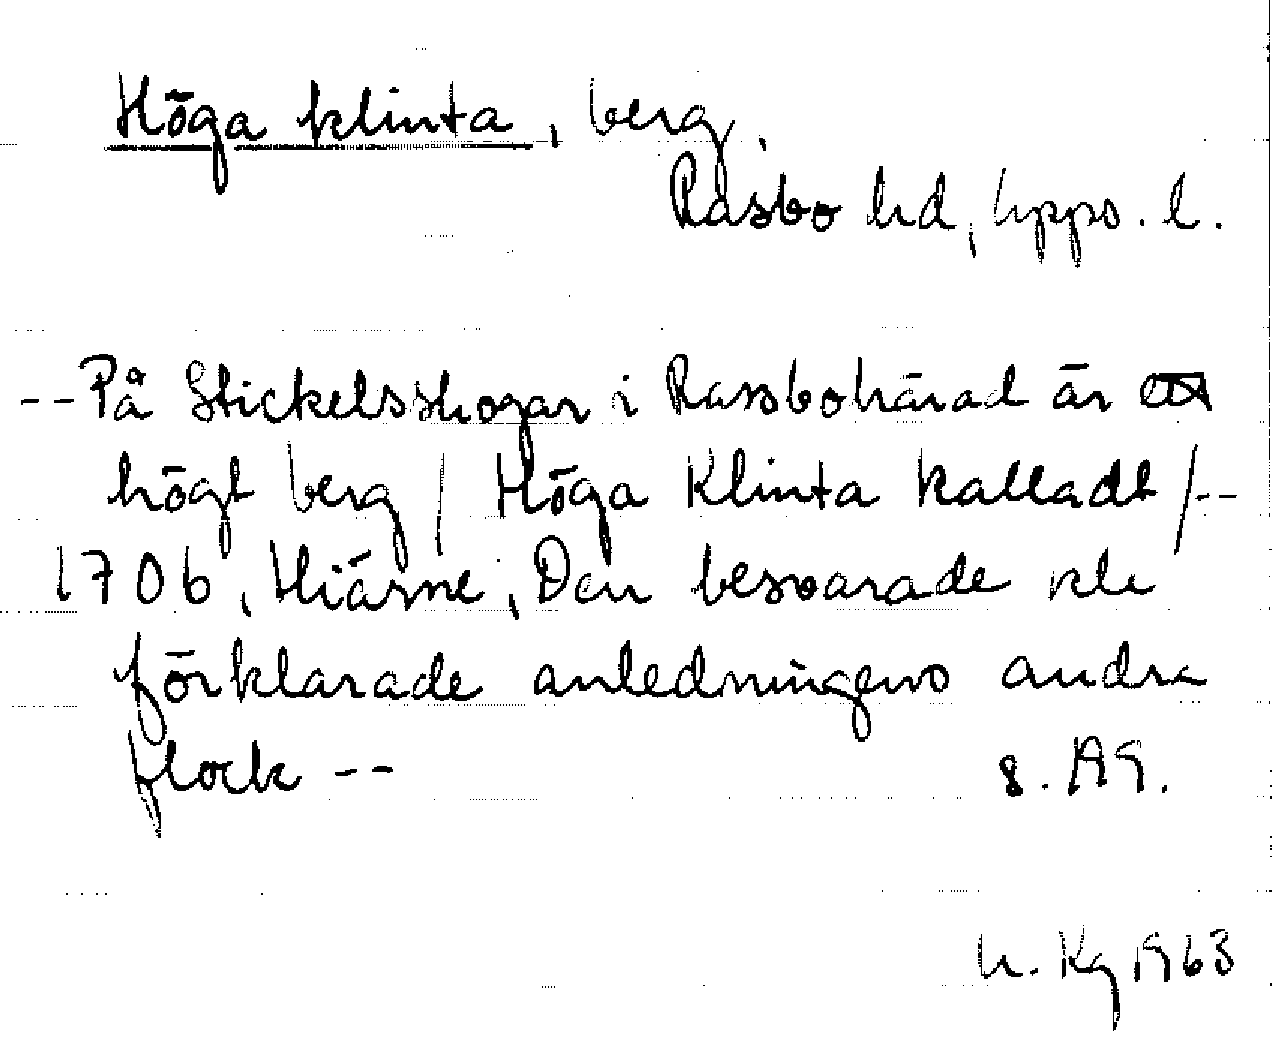 Höga klinta, berg.
Rasbo hd, Upps. l.
-- På Stickelsskogar i Rassbohärad är ett
högt berg / Höga Klinta kalladt / --
1706, Hiärne, Den besvarade
förklarade anledningens andra
flock -- s. 19.
1963